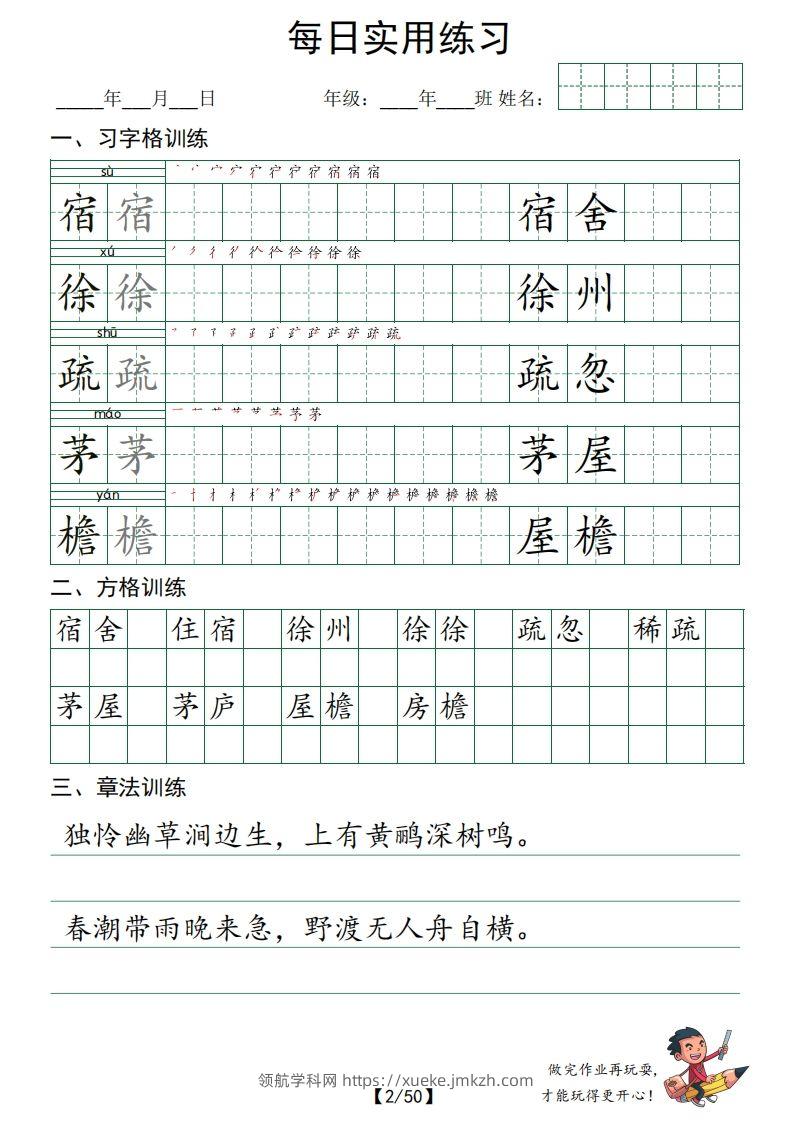 每日实用练习
_____年___月___日 年级：____年____班 姓名：
一、习字格训练
sù
宿 宿 宿 舍
xú
徐 徐 徐 州
shū
疏 疏 疏 忽
máo
茅 茅 茅 屋
yán
檐 檐 屋 檐
二、方格训练
宿 舍 住 宿 徐 州 徐 徐 疏 忽 稀 疏
茅 屋 茅 庐 屋 檐 房 檐
三、章法训练
独怜幽草涧边生，上有黄鹂深树鸣。
春潮带雨晚来急，野渡无人舟自横。
做完作业再玩耍，
领航学科网 https://xueke.jmkzh.com
才能玩得更开心！
【2/50】